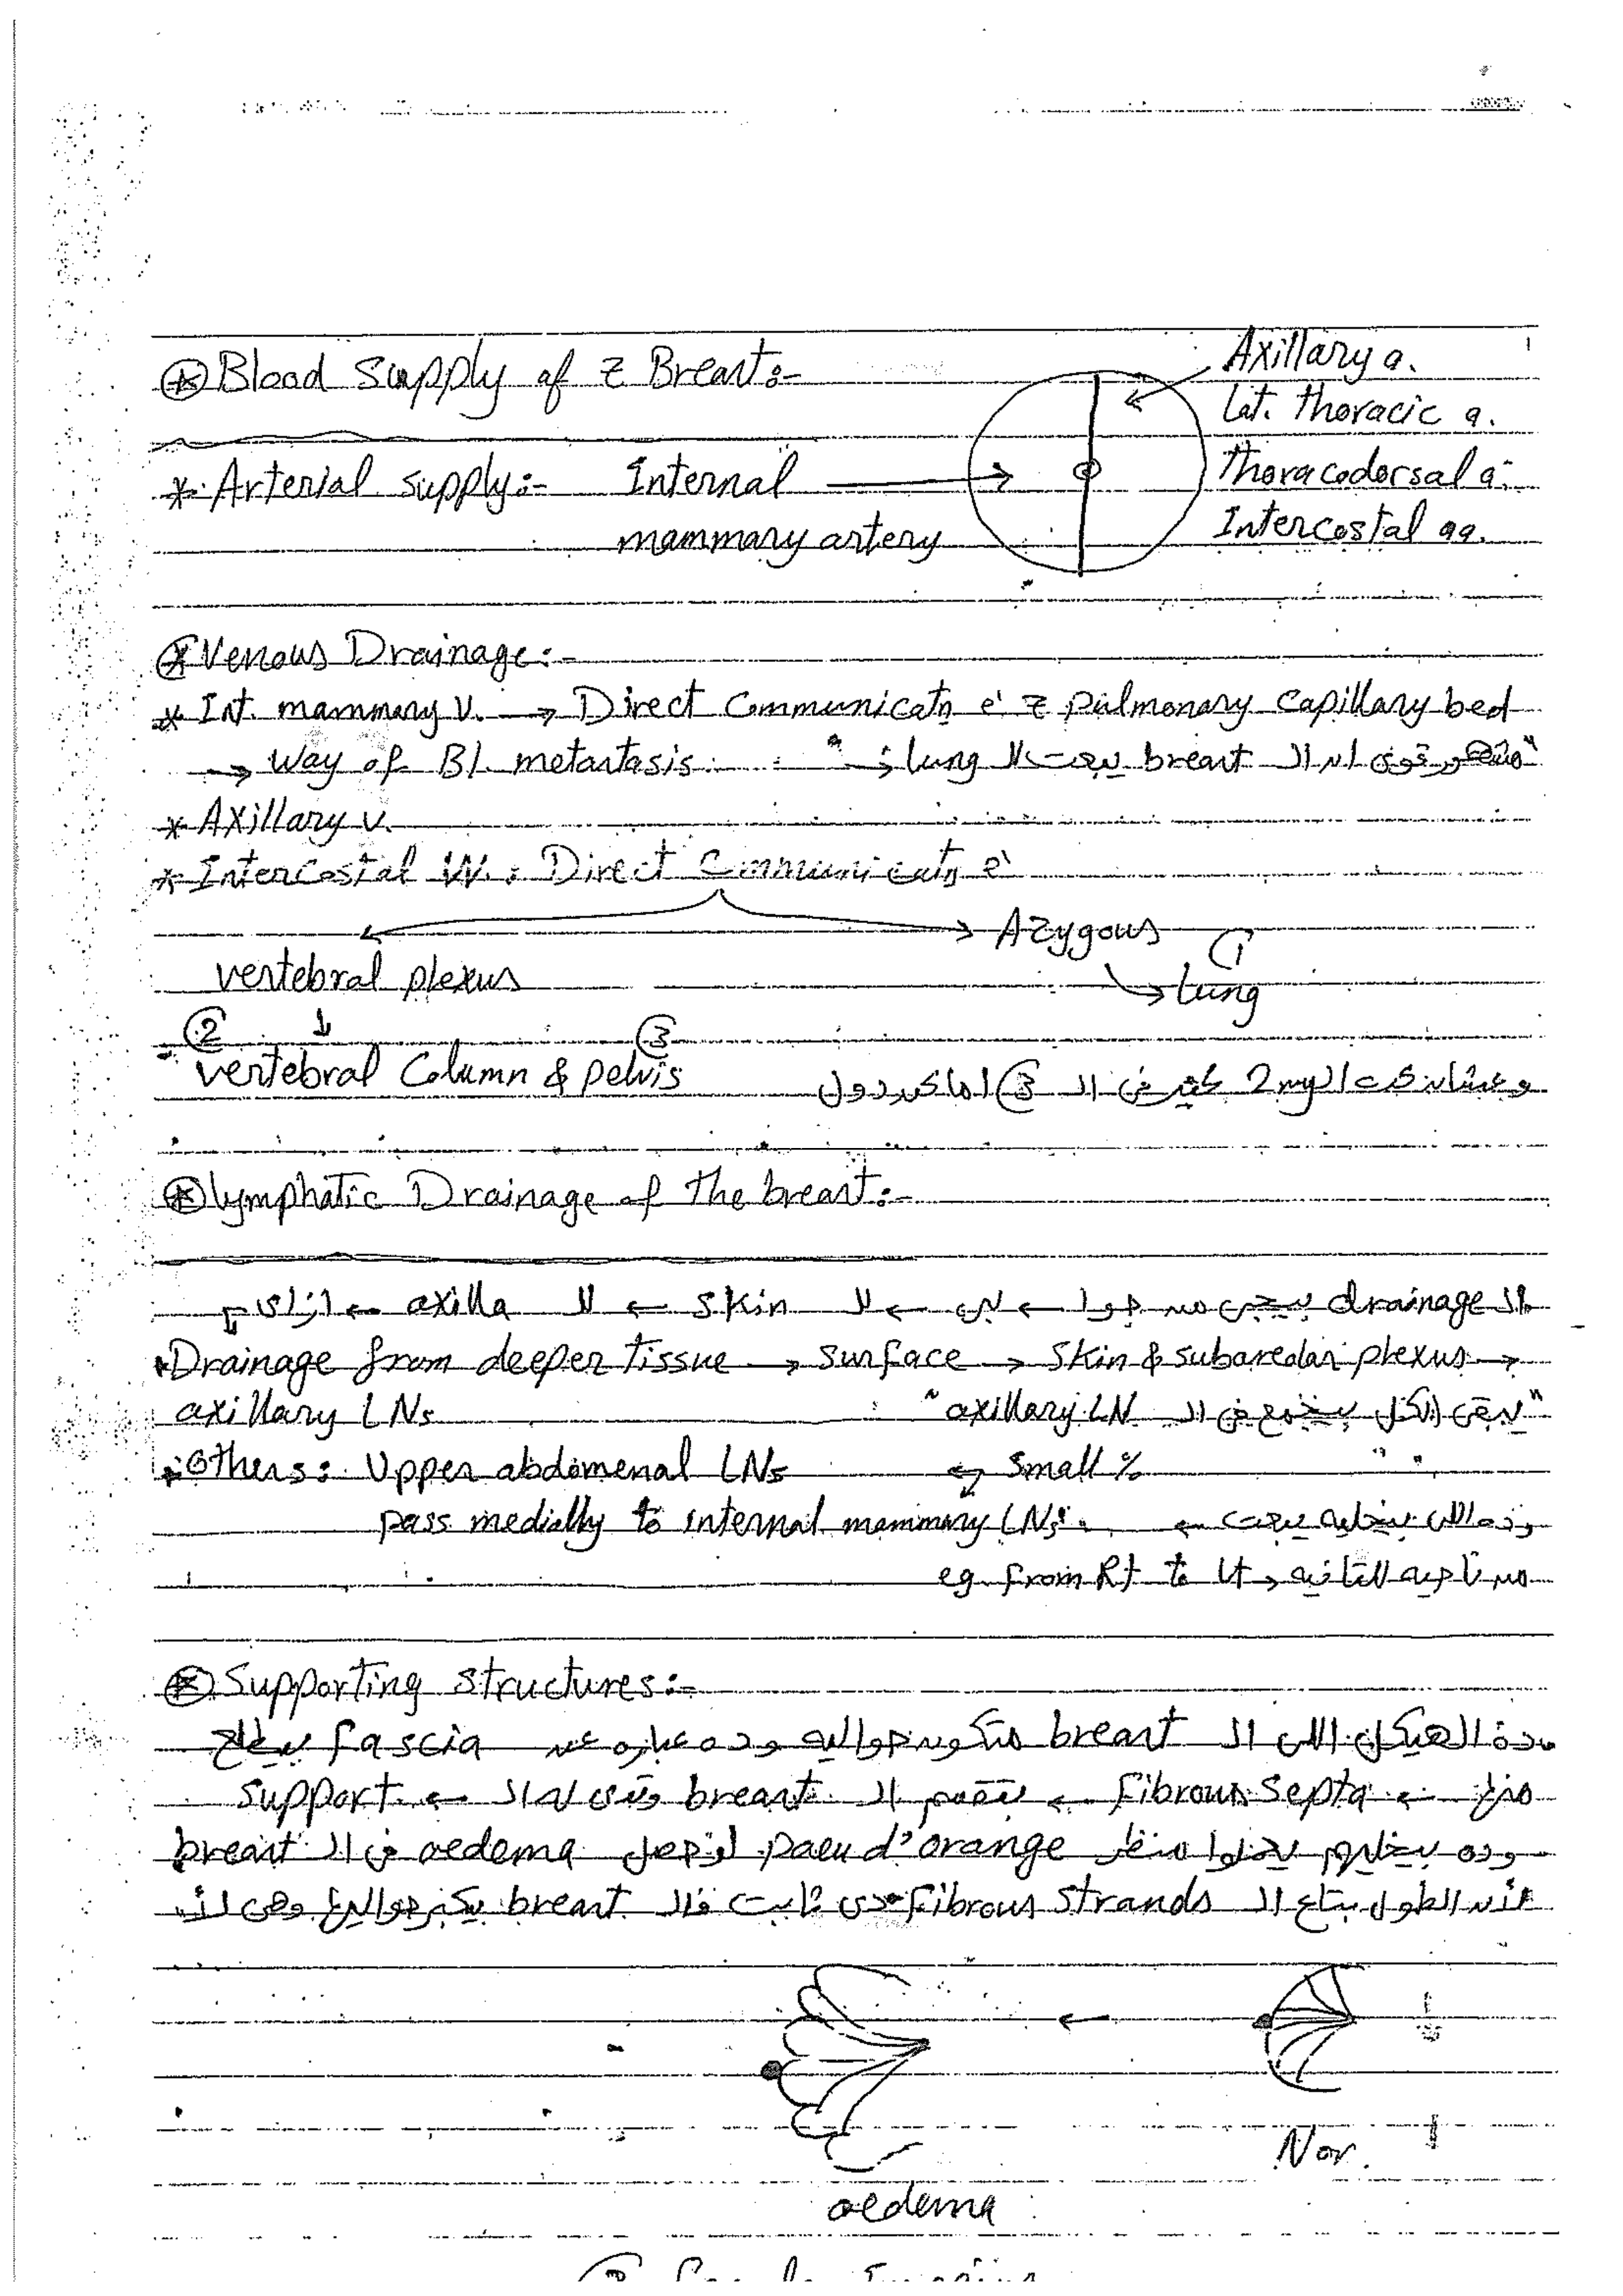 ⊛ Blood Supply of z Breast:-
Axillary a.
Lat. thoracic a.
Thoracodorsal a.
Intercostal aa.
* Arterial supply:- Internal
mammary artery
⊛ Venous Drainage:-
* Int. mammary V. → Direct Communicatn è z pulmonary capillary bed
→ way of Bl. metastasis " ال breast بيصب لل lung "
* Axillary V.
* Intercostal VV. : Direct Communicatn è
Azygous
vertebral plexus
①
→ Lung
② ↓ ③
vertebral Column & pelvis
وعشان كده ال 2ry كتير في ال ③ اماكن دول
⊛ Lymphatic Drainage of The breast:-
ال drainage بييجي من جوا ← لبره ← لل skin ← لل axilla ← ازاى ؟
* Drainage from deeper tissue → surface → skin & subareolar plexus →
axillary LNs " يبقى الكل بيتجمع في ال axillary LN "
* Others: Upper abdomenal LNs ↔ small %
pass medially to internal mammary LNs. وده اللى بيخليه يصب ←
من ناحيه للتانيه → eg. from Rt to Lt
⊛ Supporting structures:-
ده الهيكل اللى ال breast متكون حواليه وده عباره عن fascia بيطلع
منها ← Fibrous septa ← بتقسم ال breast وتدى له ال ← support
وده بيخليهم ياخدوا منظر paeu d'orange لو حصل oedema في ال breast
لأن الطول بتاع ال Fibrous strands دى ثابت فال breast يكبر حواليها وهى لأ
Nor.
oedema